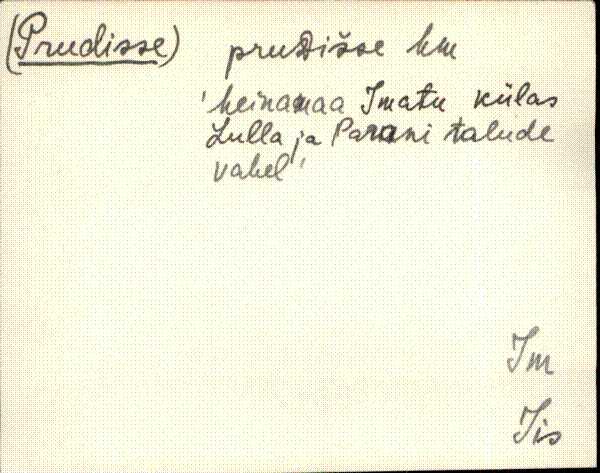 (Prudisse) pruDišse hm
'heinamaa Imatu külas
Lulla ja Parani talude
vahel'
Im
Iis